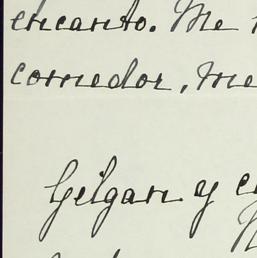 encanto. Me
comedor, me
Gilgan y